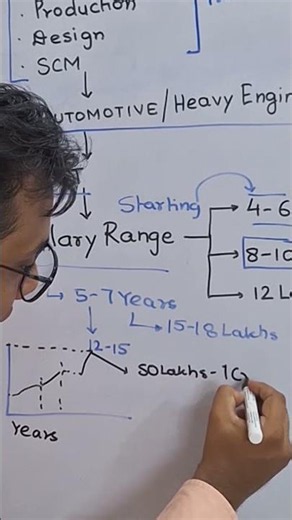 · Production
· Design
· SCM
AUTOMOTIVE / Heavy Engin
Starting
4-6
lary Range
8-10
12 L
5-7 Years
15-18 Lakhs
12-15
50 Lakhs - 1
Years